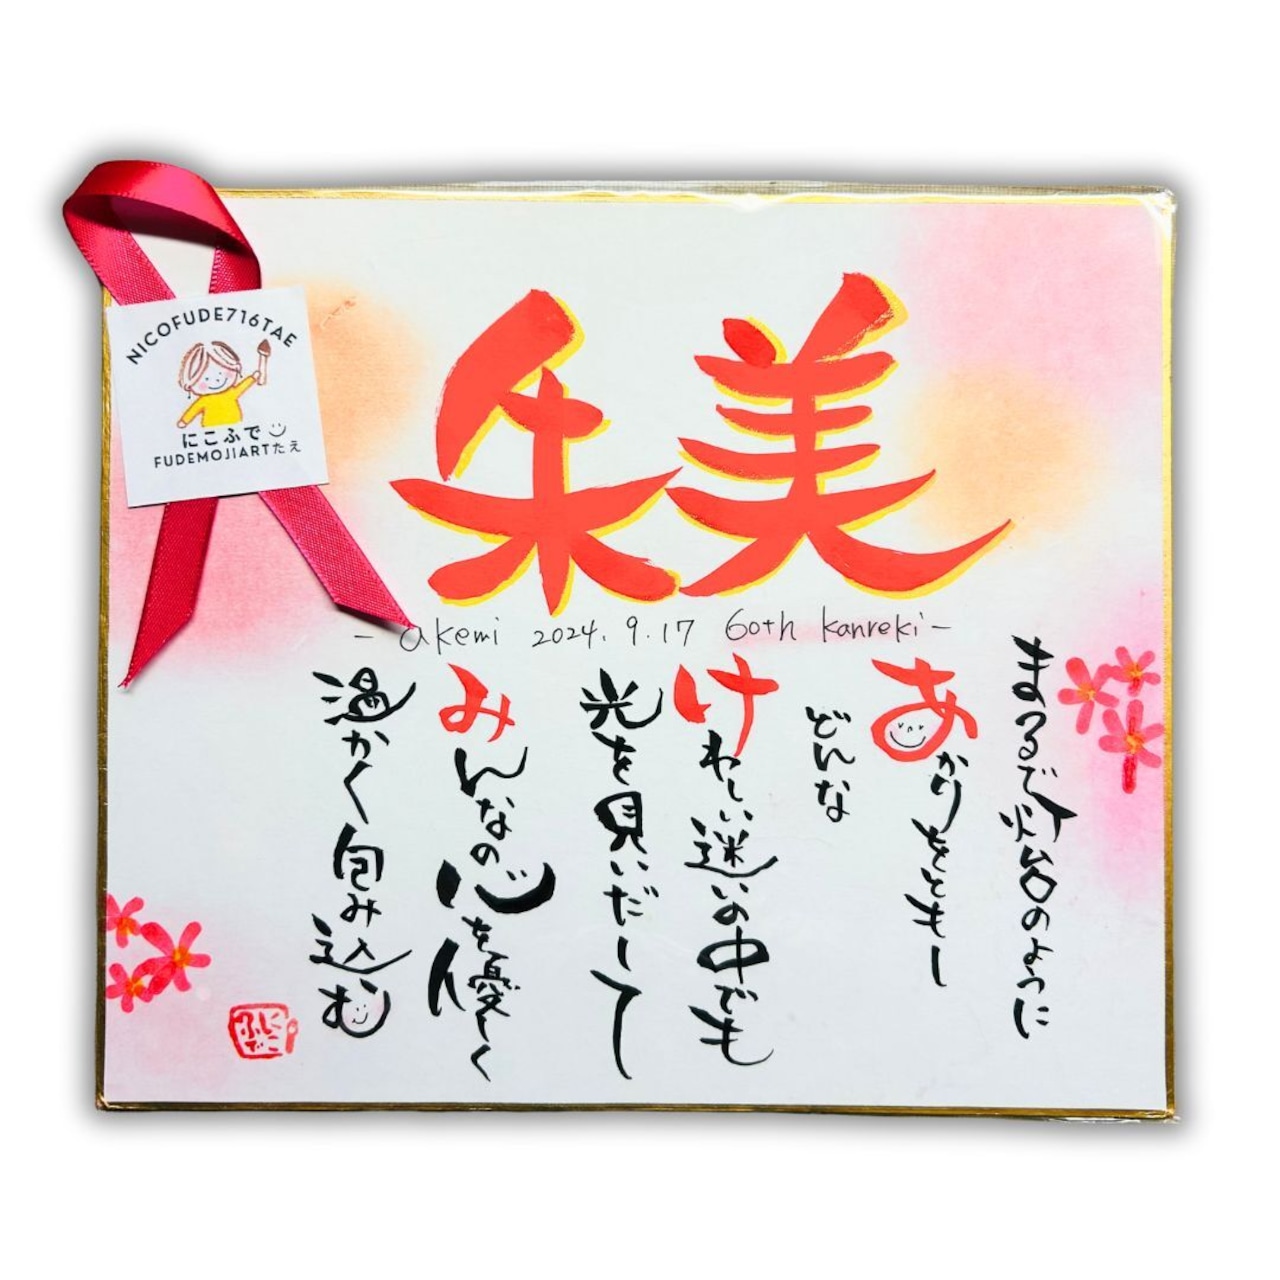 NICOFUDE716TAE
にこふで
FUDEMOJIARTたえ
朱美
- akemi 2024.9.17 60th kanreki -
まるで灯台のように
あかりをともし
どんな
けわしい迷いの中でも
光を見いだして
みんなの心を優しく
温かく包み込む
にこふで